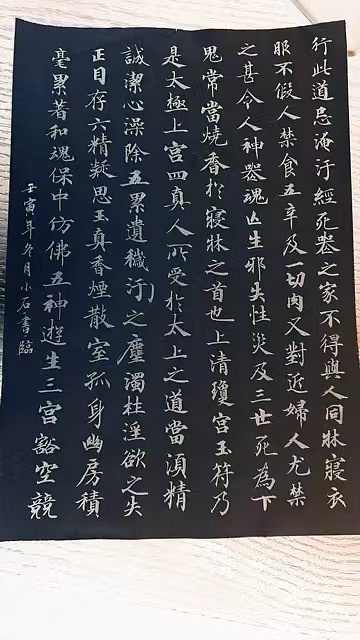 行此道忌淹汙經死喪之家不得與人同牀寢衣
服不假人禁食五辛及一切肉又對近婦人尤禁
之甚令人神喪魂亡生邪失性災及三世死為下
鬼常當燒香於寢牀之首也上清瓊宮玉符乃
是太極上宮四真人所受於太上之道當湏精
誠潔心澡除五累遺穢汙之塵濁杜淫欲之失
正目存六精凝思玉真香煙散室孤身幽房積
毫累著和魂保中仿佛五神遊生三宮豁空競
壬寅年冬月小石書臨